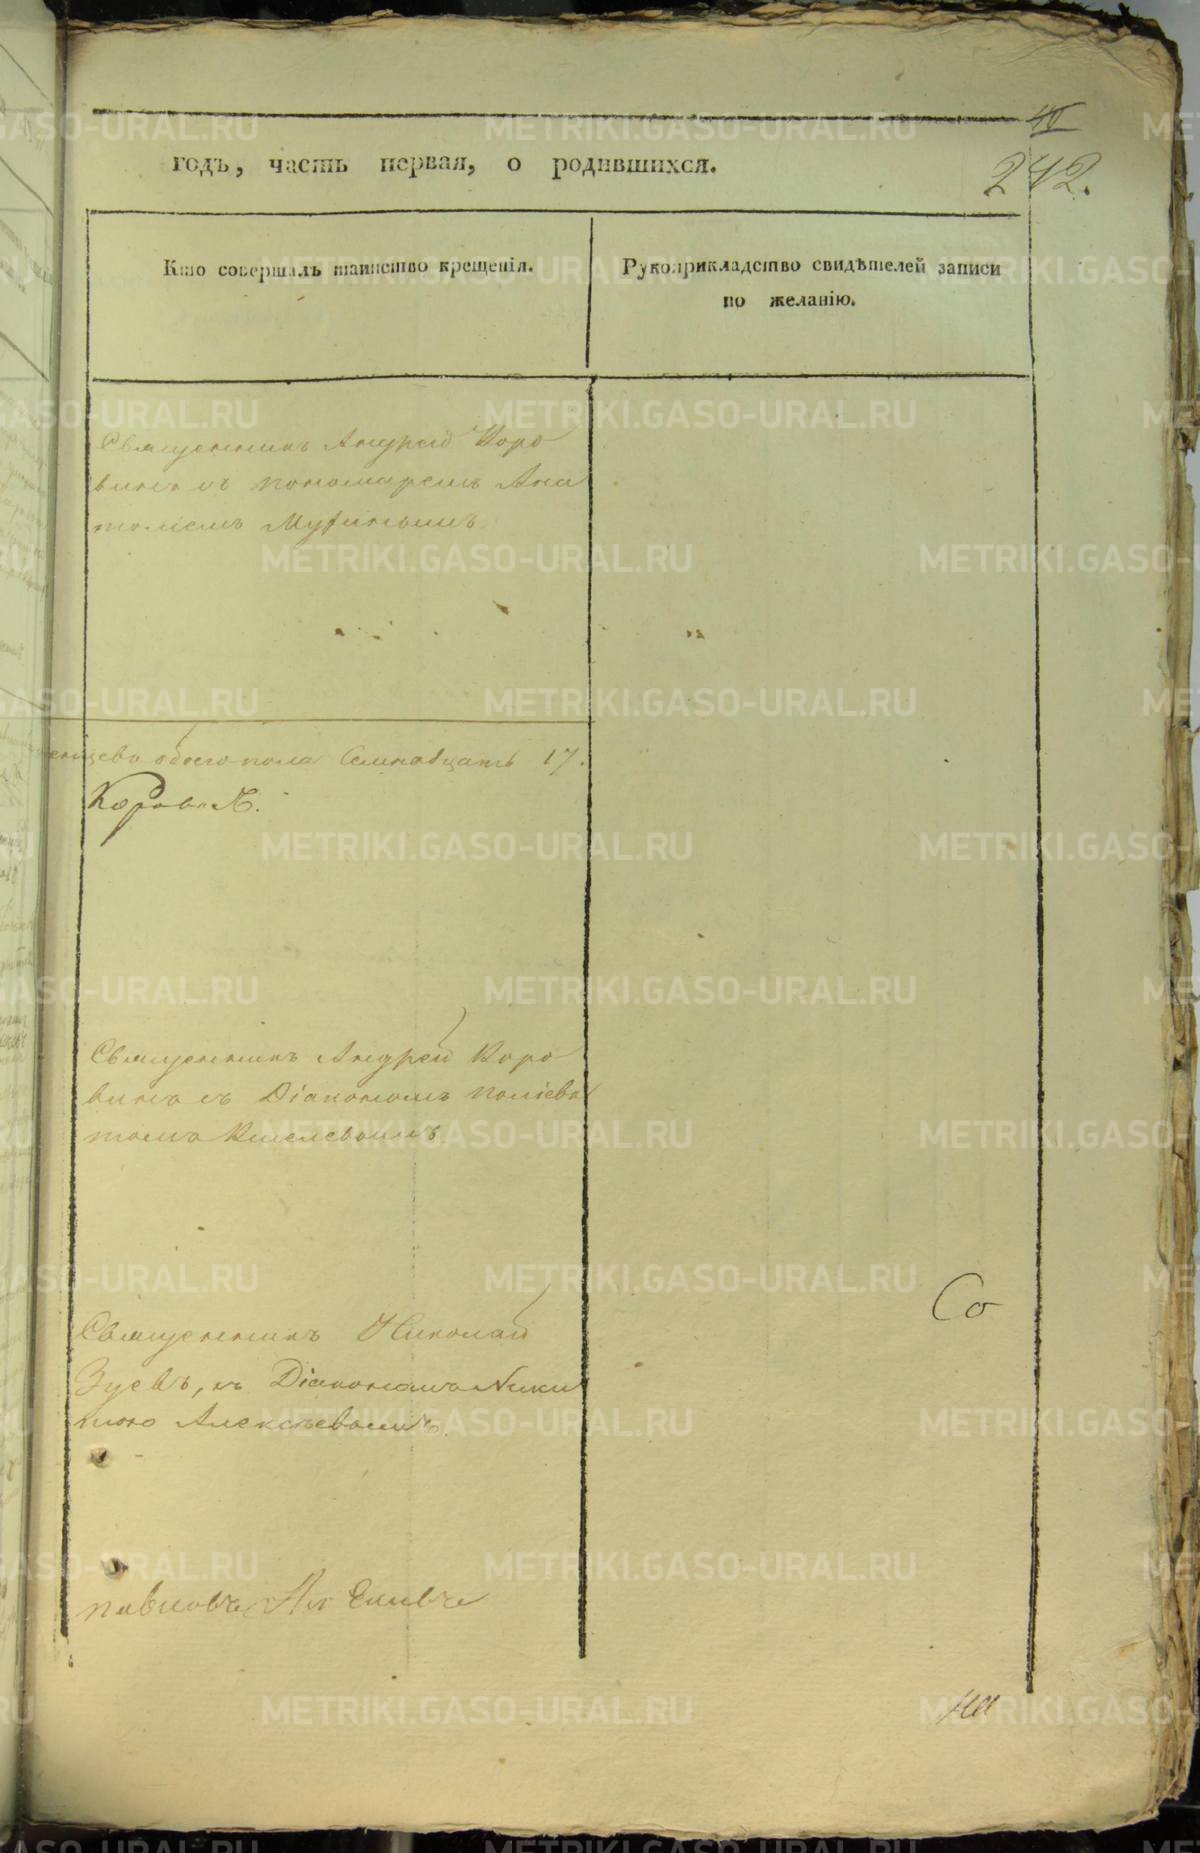 242.
годъ, часть первая, о родившихся.
Кто совершалъ таинство крещенія.
Рукоприкладство свидѣтелей записи
по желанію.
Священникъ Андрей Коро
винъ съ пономаремъ Ана
толіемъ
обоего пола Семнадцать 17.
Священникъ Андрей Коро
винъ съ Діакономъ Поліевк
томъ Киселевымъ
Со
Священникъ Николай
Зуевъ, съ Діакономъ Ники
тою Алексѣевымъ.
METRIKI.GASO-URAL.RU